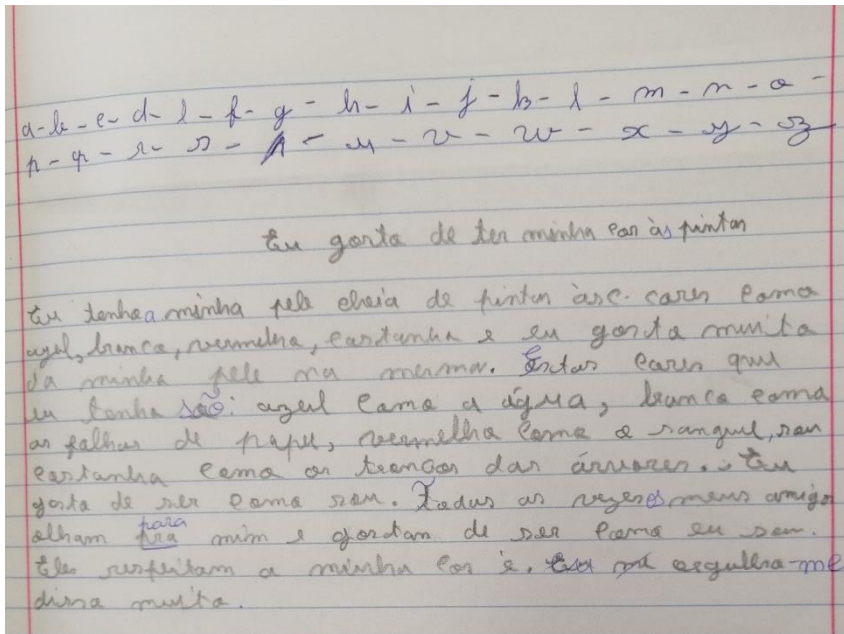 a-b-c-d-e-f-g-h-i-j-k-l-m-n-o-
p-q-r-s-t-u-v-w-x-y-z
Eu gosto de ter minha cor às pintas
Eu tenho a minha pele cheia de pintas às c. cores como
azul, branco, vermelho, castanho e eu gosto muito
da minha pele na mesma. Estas cores que
eu tenho são: azul como a água, branco como
as folhas de papel, vermelho como o sangue, sou
castanho como os troncos das árvores. Eu
gosto de ser como sou. Todas as vezes os meus amigos
olham pra para mim e gostam de ser como eu sou.
Eles respeitam a minha cor e. orgulho-me
disso muito.